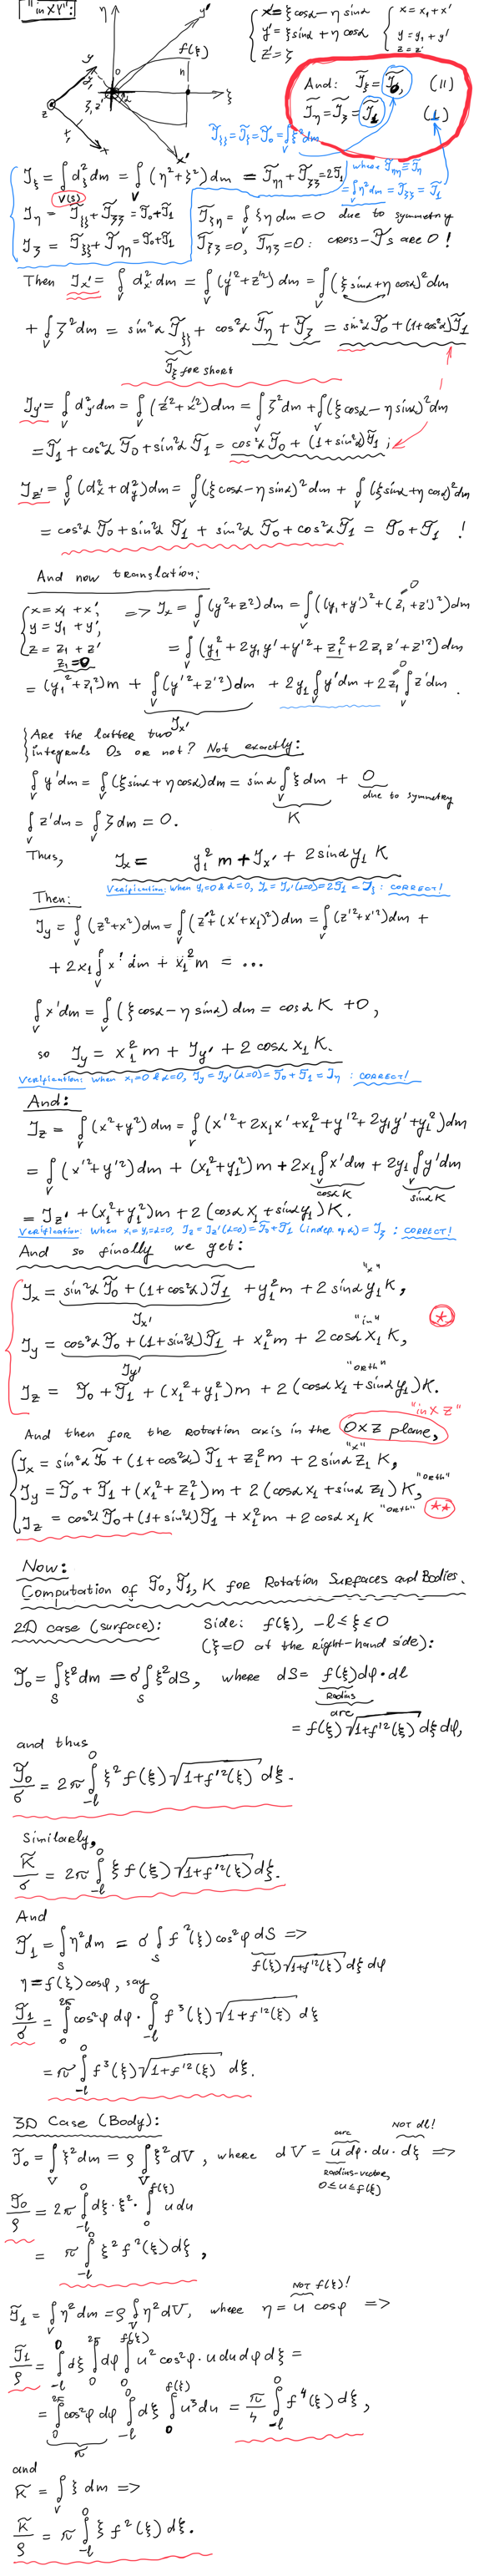 "in XY":
η
y'
f(ξ)
y
h
ξ
z
x
x'
x' = ξcosα − η sinα
y' = ξsinα + η cosα
z' = ζ
x = x₁ + x'
y = y₁ + y'
z = z'
And: J̃ξ = J̃₀, (||)
J̃η = J̃ζ = J̃₁ (⊥)
J̃ξξ = J̃ξ = J̃₀ = ∫ξ²dm
V
where J̃ηη ≡ J̃η
= ∫η²dm = J̃ζζ = J̃₁
V
Jξ = ∫d²ξ dm = ∫(η²+ζ²)dm = J̃ηη + J̃ζζ = 2J̃₁
V(S)
Jη = J̃ξξ + J̃ζζ = J̃₀ + J̃₁
J̃ξη = ∫ξη dm = 0 due to symmetry
Jζ = J̃ξξ + J̃ηη = J̃₀ + J̃₁
J̃ξζ = 0, J̃ηζ = 0: cross-J̃s are 0!
Then Jx' = ∫d²x' dm = ∫(y'²+z'²)dm = ∫(ξ sinα + η cosα)²dm
+ ∫ζ²dm = sin²α J̃ξξ + cos²α J̃η + J̃ζ = sin²α J̃₀ + (1+cos²α)J̃₁
J̃ξ for short
Jy' = ∫d²y' dm = ∫(z'²+x'²)dm = ∫ζ²dm + ∫(ξ cosα − η sinα)²dm
= J̃₁ + cos²α J̃₀ + sin²α J̃₁ = cos²α J̃₀ + (1+sin²α)J̃₁;
Jz' = ∫(d²x + d²y)dm = ∫(ξcosα − η sinα)²dm + ∫(ξsinα + η cosα)²dm
= cos²α J̃₀ + sin²α J̃₁ + sin²α J̃₀ + cos²α J̃₁ = J̃₀ + J̃₁ !
And now translation:
x = x₁ + x',
y = y₁ + y',
z = z₁ + z'
z₁ = 0
=> Jx = ∫(y²+z²)dm = ∫((y₁+y')² + (z₁+z')²)dm
= ∫(y₁² + 2y₁y' + y'² + z₁² + 2z₁z' + z'²)dm
= (y₁²+z₁²)m + ∫(y'²+z'²)dm + 2y₁∫y'dm + 2z₁∫z'dm.
Jx'
Are the latter two
integrals 0s or not? Not exactly:
∫y'dm = ∫(ξsinα + η cosα)dm = sinα ∫ξ dm + 0
K
due to symmetry
∫z'dm = ∫ζ dm = 0.
Thus, Jx = y₁²m + Jx' + 2sinα y₁ K
Verification: when y₁=0 & α=0, Jx = Jx'(α=0) = 2J̃₁ = Jξ: CORRECT!
Then:
Jy = ∫(z²+x²)dm = ∫(z'²+(x'+x₁)²)dm = ∫(z'²+x'²)dm +
+ 2x₁∫x'dm + x₁²m = ...
∫x'dm = ∫(ξ cosα − η sinα)dm = cosα K + 0,
so Jy = x₁²m + Jy' + 2 cosα x₁ K.
Verification: when x₁=0 & α=0, Jy = Jy'(α=0) = J̃₀ + J̃₁ = Jη: CORRECT!
And:
Jz = ∫(x²+y²)dm = ∫(x'² + 2x₁x' + x₁² + y'² + 2y₁y' + y₁²)dm
= ∫(x'²+y'²)dm + (x₁²+y₁²)m + 2x₁∫x'dm + 2y₁∫y'dm
cosα K sinα K
= Jz' + (x₁²+y₁²)m + 2(cosα x₁ + sinα y₁)K.
Verification: when x₁=y₁=α=0, Jz = Jz'(α=0) = J̃₀ + J̃₁ (indep. of α) = Jζ: CORRECT!
And so finally we get:
"x"
Jx = sin²α J̃₀ + (1+cos²α)J̃₁ + y₁²m + 2 sinα y₁ K,
Jx'
"in"
Jy = cos²α J̃₀ + (1+sin²α)J̃₁ + x₁²m + 2 cosα x₁ K,
Jy'
"orth"
Jz = J̃₀ + J̃₁ + (x₁²+y₁²)m + 2(cosα x₁ + sinα y₁)K.
(*)
"in XZ"
And then for the rotation axis in the OXZ plane,
"x"
Jx = sin²α J̃₀ + (1+cos²α)J̃₁ + z₁²m + 2 sinα z₁ K,
"orth"
Jy = J̃₀ + J̃₁ + (x₁²+z₁²)m + 2(cosα x₁ + sinα z₁)K,
"orth"
Jz = cos²α J̃₀ + (1+sin²α)J̃₁ + x₁²m + 2 cosα x₁ K
(**)
Now:
Computation of J̃₀, J̃₁, K for Rotation Surfaces and Bodies.
2D case (surface): Side: f(ξ), −l ≤ ξ ≤ 0
(ξ=0 at the right-hand side):
J̃₀ = ∫ξ²dm = σ∫ξ²dS, where dS = f(ξ)dφ·dl
Radius
arc
= f(ξ)√(1+f'²(ξ)) dξ dφ,
and thus
J̃₀/σ = 2π ∫₋ₗ⁰ ξ² f(ξ)√(1+f'²(ξ)) dξ.
Similarly,
K̃/σ = 2π ∫₋ₗ⁰ ξ f(ξ)√(1+f'²(ξ)) dξ.
And
J̃₁ = ∫η²dm = σ ∫ f²(ξ)cos²φ dS =>
f(ξ)√(1+f'²(ξ)) dξ dφ
η = f(ξ)cosφ, say
J̃₁/σ = ∫₀²π cos²φ dφ · ∫₋ₗ⁰ f³(ξ)√(1+f'²(ξ)) dξ
= π ∫₋ₗ⁰ f³(ξ)√(1+f'²(ξ)) dξ.
3D Case (Body):
arc NOT dl!
J̃₀ = ∫ξ²dm = ρ ∫ξ²dV, where dV = u dφ · du · dξ =>
Radius-vector,
0≤u≤f(ξ)
J̃₀/ρ = 2π ∫₋ₗ⁰ dξ·ξ² · ∫₀f(ξ) u du
= π ∫₋ₗ⁰ ξ² f²(ξ)dξ,
NOT f(ξ)!
J̃₁ = ∫η²dm = ρ∫η²dV, where η = u cosφ =>
J̃₁/ρ = ∫₋ₗ⁰ dξ ∫₀²π dφ ∫₀f(ξ) u² cos²φ · u du dφ dξ =
= ∫₀²π cos²φ dφ ∫₋ₗ⁰ dξ ∫₀f(ξ) u³du = π/4 ∫₋ₗ⁰ f⁴(ξ) dξ,
π
and
K̃ = ∫ξ dm =>
K̃/ρ = π ∫₋ₗ⁰ ξ f²(ξ) dξ.